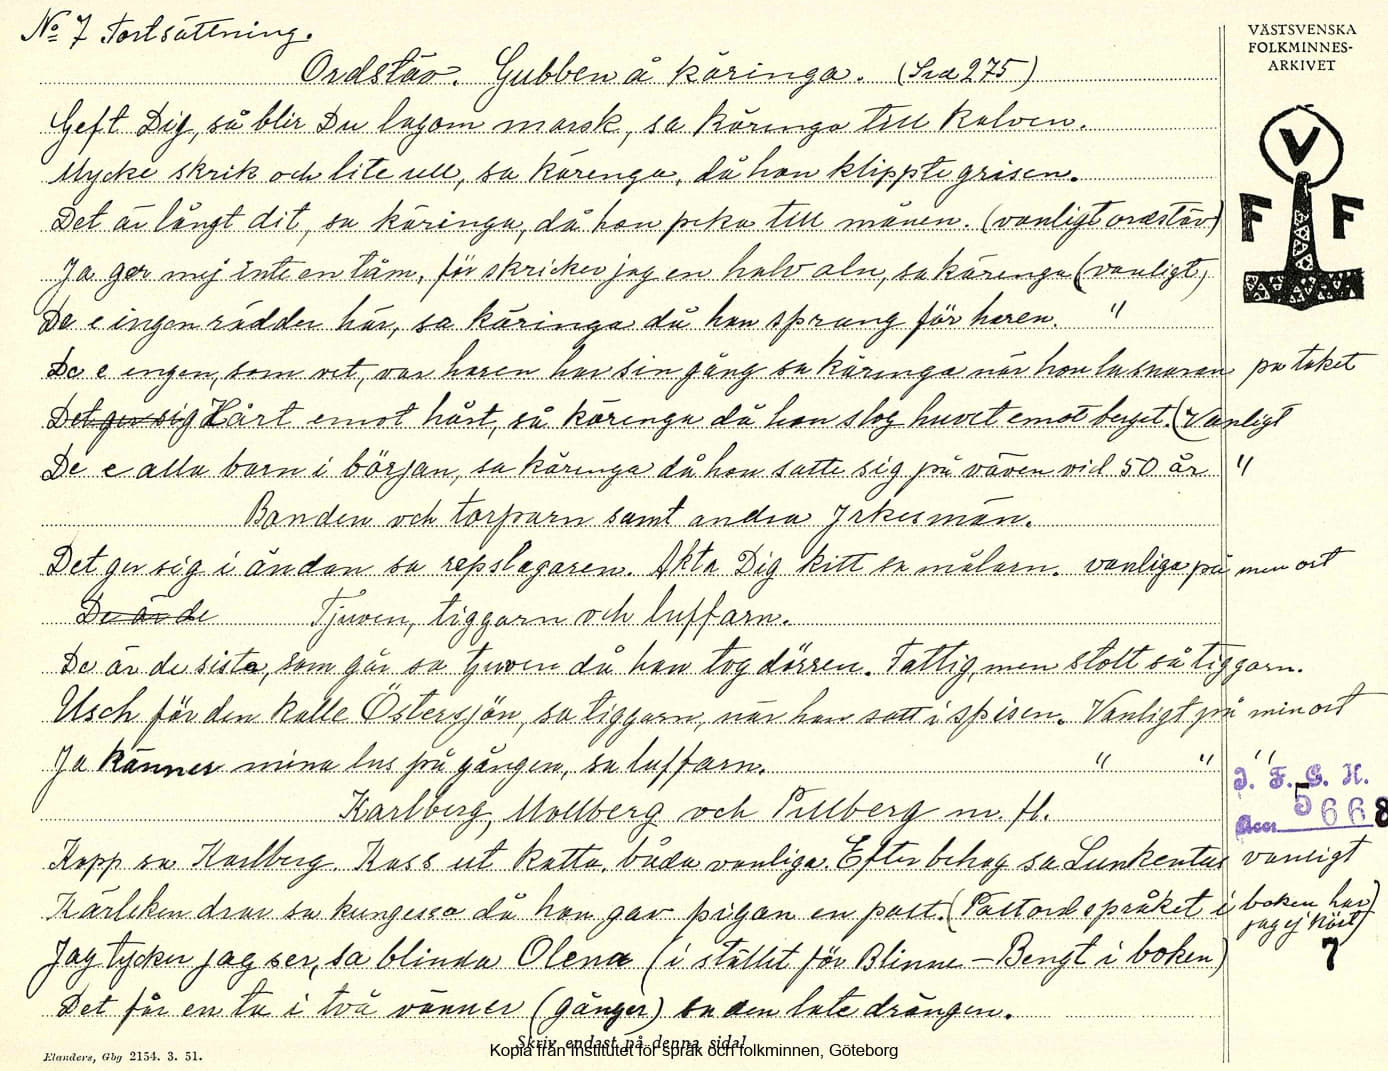 No 7 Fortsättning.
Ordstäv. Gubben å käringa. (Sid 275)
Geft Dig, så blir Du lagom marsk, sa käringa till kalven.
Mycke skrik och lite ull, sa kärenga, då hon klippte grisen.
Det är långt dit, sa käringa, då hon peka till månen. (vanligt ordstäv)
Ja ger mej inte en tåm, för skricker jag en halv aln, sa kärenga (vanligt)
De e ingen rädder här, sa käringa då hon sprang för haren. "
De e engen, som vet, var haren har sin gång sa käringa när hon la snaran på taket
Det ger sig Hårt emot hårt, så kärenga då hon slog huvet emot berget. (Vanligt
De e alla barn i början, sa kärenga då hon satte sig på väven vid 50 år "
Bonden och torparn samt andra yrkesmän.
Det ger sig i ändan sa repslagaren. Akta Dig kitt sa målarn. vanliga på men ort
De är de Tjuven, tiggarn och luffarn.
De är de sista, som går sa tjuven då han tog dörren. Fattig, men stolt så tiggarn.
Usch för den kalle Östersjön, sa tiggarn, när han satt i spisen. Vanligt på min ort
Ja känner mina lus på gången, sa luffarn. " " "
Karlberg, Mollberg och Pillberg m. fl.
Kopp sa Karlberg. Kass ut katta. båda vanliga. Efter behag sa Lunkentus vanligt
Kärleken drar sa kungessa då hon gav pigan en patt. (Pattordspråket i boken har jag ej hört)
Jag tycker jag ser, sa blinda Olena (i stället för Blinne - Bengt i boken)
Det får en ta i två vänner (gånger) sa den late drängen.
Skriv endast på denna sida!
Kopia från Institutet för språk och folkminnen, Göteborg
Elanders, Gbg 2154. 3. 51.
VÄSTSVENSKA
FOLKMINNES-
ARKIVET
V
F F
I. F. G. H.
Acc: 5668
7